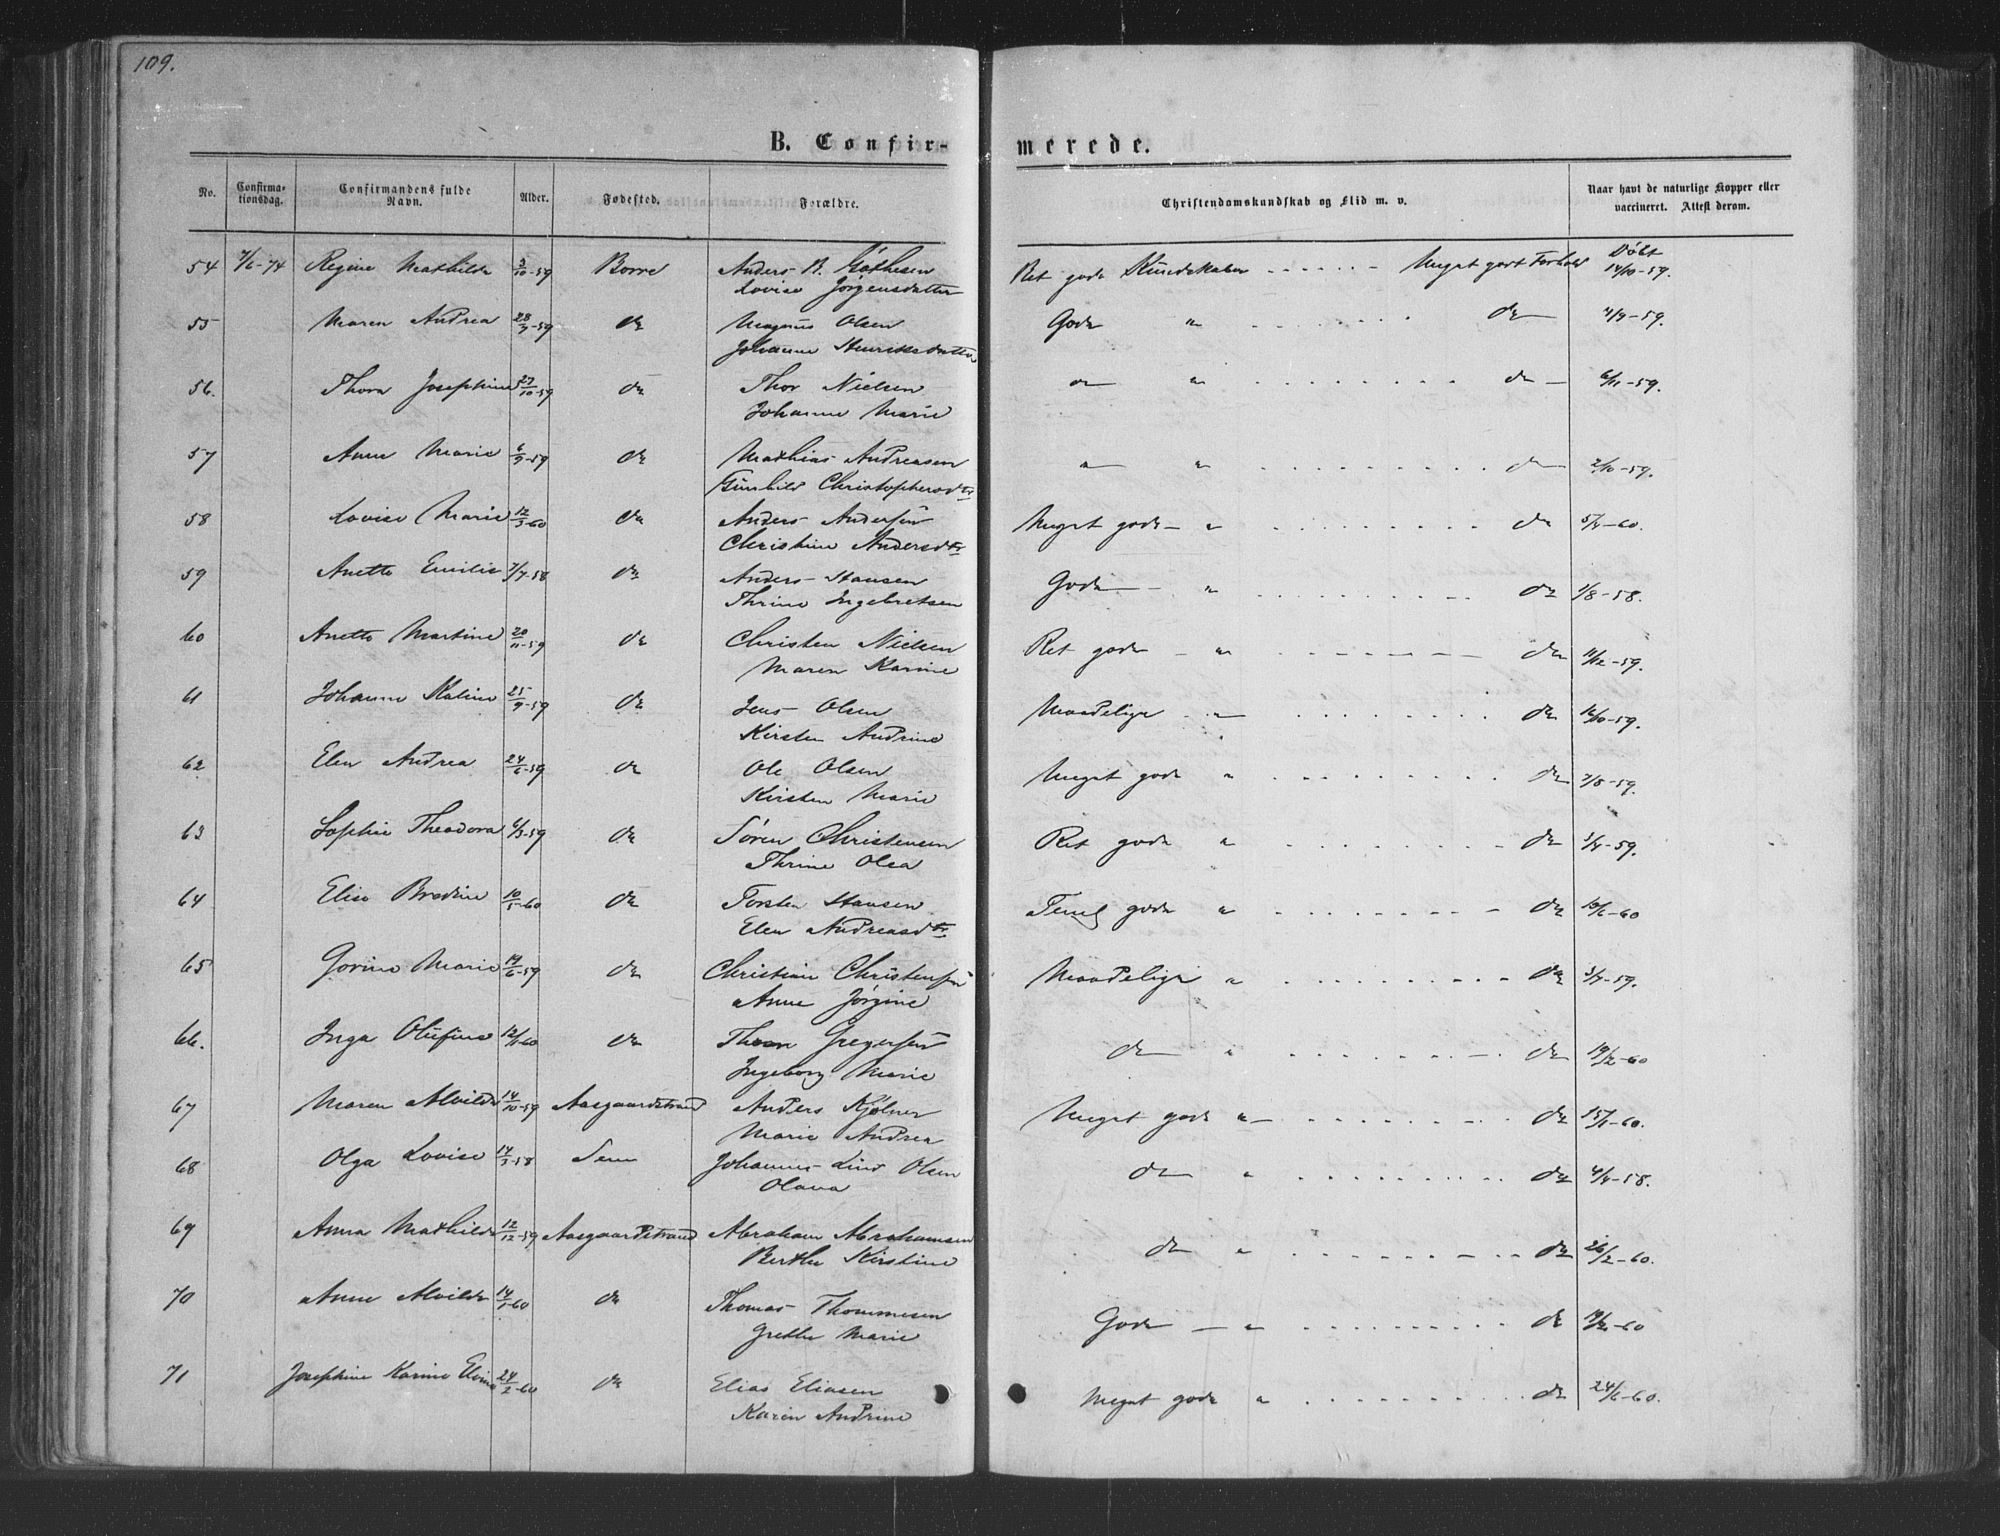 109.
B. Confir-
merede.
No.
Confirma-
tionsdag.
Confirmandens fulde
Navn.
Alder.
Fødested.
Forældre.
Christendomskundskab og Flid m. v.
Naar havt de naturlige Kopper eller
vaccineret. Attest derom.
54 7/6-74 Regine Mathilde 3/10-59 Borre Anders B. Gøthesen Ret gode Kundskaber Meget godt Forhold Døbt 14/10-59.
Lovise Jørgensdatter
55 Maren Andrea 28/7-59 do Magnus Olsen Gode " do 4/9-59.
Johanne Henriksdatter
56. Thora Josephine 27/10-59 do Thor Nielsen do " do 6/11-59.
Johanne Marie
57 Anne Marie 6/9-59 do Mathias Andreasen " " do 2/10-59.
Gunhild Christophersdtr
58 Lovise Marie 12/3-60 do Anders Andersen Meget gode " do 5/4-60.
Christine Andersdtr
59 Anette Emilie 7/7-58 do Anders Hansen Gode " do 1/8-58.
Thrine Ingebretsen
60 Anette Martine 20/11-59 do Christen Nielsen Ret gode " do 11/12-59.
Maren Karine
61 Johanne Maline 25/9-59 do Jens Olsen Maadelige " do 16/10-59.
Kirsten Andrine
62 Elen Andrea 24/6-59 do Ole Olsen Meget gode " do 7/8-59.
Kirsten Marie
63 Sophie Theodora 6/3-59 do Søren Christensen Ret gode " do 3/4-59.
Thrine Olea
64 Elise Bredine 10/5-60 do Torsten Hansen Teml gode " do 10/6-60
Elen Andreasdtr
65 Gorine Marie 14/6-59 do Christian Christensen Maadelige " do 3/7-59.
Anne Jørgine
66. Inga Olufine 12/1-60 do Thom Gregersen do " do 19/2-60
Ingeborg Marie
67 Maren Alvilde 14/10-59 Aasgaardstrand Anders Kjølner Meget gode " do 15/1-60.
Marie Andrea
68 Olga Lovise 17/3-58 Sem Johannes Lind Olsen do " do 4/4-58.
Olava
69 Anna Mathilde 12/12-59 Aasgaardstrand Abraham Abrahamsen do " do 26/2-60.
Berthe Kirstine
70 Anne Alvilde 14/1-60 do Thomas Thommesen Gode " do 19/2-60
Grethe Marie
71 Josephine Karine Elvine 24/2-60 do Elias Eliasen Meget gode " do 24/6-60.
Karen Andrine